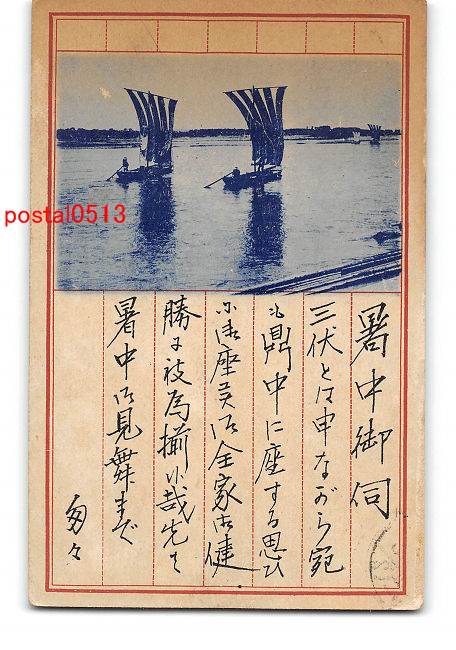 暑中御伺
三伏とは申ながら宛
も鼎中に座する思ひ
に御座候処御全家御健
勝に被為揃候哉先は
暑中御見舞まで
匆々
postal0513